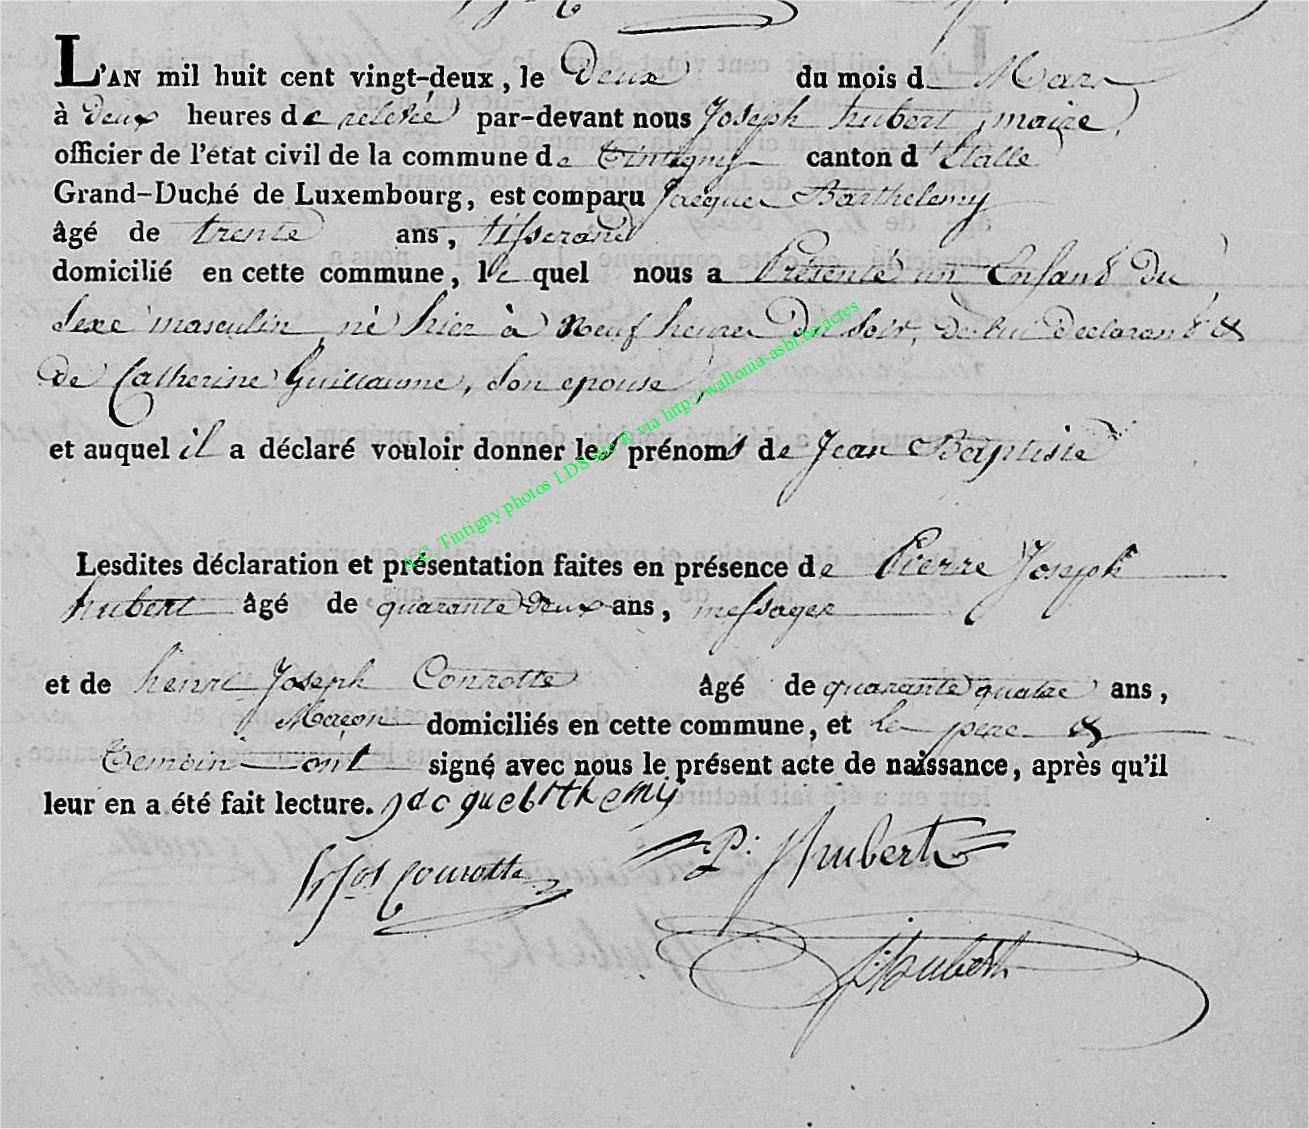 L'AN mil huit cent vingt-deux, le Deux du mois d Mars
à Deux heures de relevé par-devant nous Joseph hubert, maire,
officier de l'état civil de la commune de Tintigny canton d'Etalle
Grand-Duché de Luxembourg, est comparu Jacques Barthelemy
âgé de trente ans, tisserand
domicilié en cette commune, le quel nous a Présenté un Enfant Du
Sexe masculin né hier à Neuf heures Du soir, de lui declarant &
de Catherine Guillaume, son epouse,
et auquel il a déclaré vouloir donner les prénoms de Jean Baptiste
A.C. Tintigny photos LDS via http://wallonia-asbl.be/actes
Lesdites déclaration et présentation faites en présence de Pierre Joseph
hubert âgé de quarante Deux ans, messager
et de henri Joseph Conrotte âgé de quarante quatre ans,
Maçon domiciliés en cette commune, et le pere &
Temoin ont signé avec nous le présent acte de naissance, après qu'il
leur en a été fait lecture.
Conrotte P: Hubert
Hubert